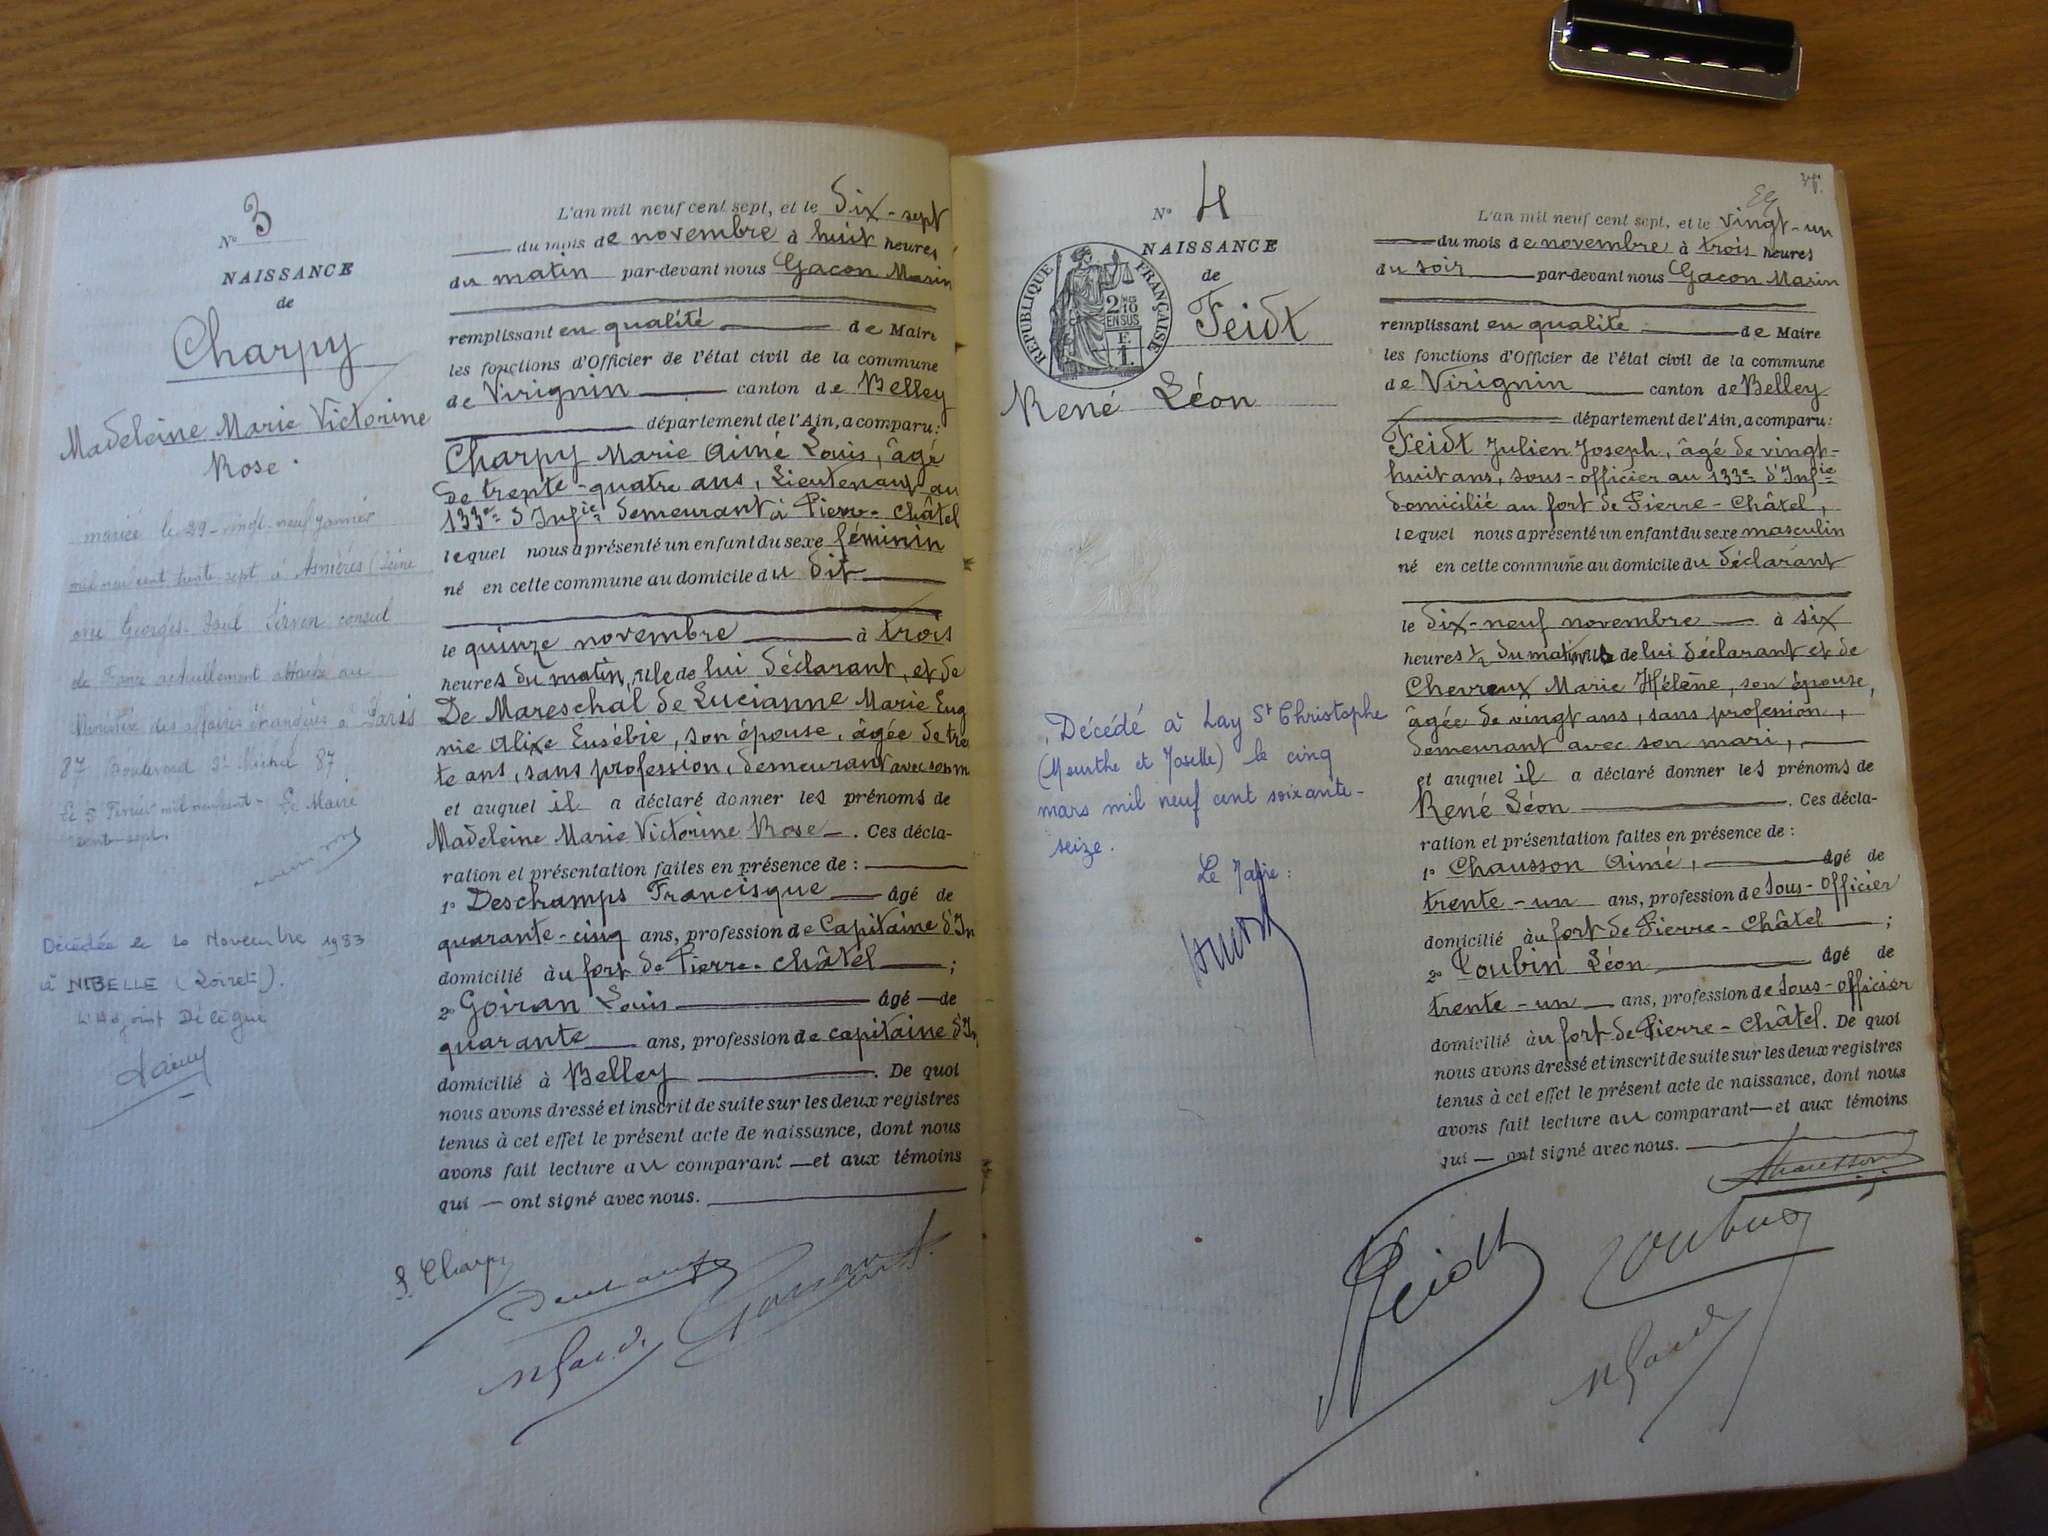 N° 3
NAISSANCE
de
Charpy
Madeleine Marie Victorine
Rose.
mariée le 29 - vingt-neuf janvier
mil neuf cent trente sept à Asnières (Seine
avec Georges Paul consul
de France actuellement attaché au
Ministère des affaires étrangères à Paris
87 Boulevard St Michel 87.
Le 5 Février mil neuf cent - Le Maire
trente-sept.
Décédée le 20 Novembre 1983
à NIBELLE (Loiret).
L'Adjoint Délégué
L'an mil neuf cent sept, et le dix-sept
du mois de novembre à huit heures
du matin par-devant nous Gacon Marin
remplissant en qualité de Maire
les fonctions d'Officier de l'état civil de la commune
de Virignin canton de Belley
département de l'Ain, a comparu:
Charpy Marie Aimé Louis, âgé
de trente-quatre ans, Lieutenant au
133e d'Infie demeurant à Pierre-Châtel
lequel nous a présenté un enfant du sexe féminin
né en cette commune au domicile du dit
le quinze novembre à trois
heures du matin, né de lui déclarant, et de
De Mareschal de Lucianne Marie Eug
nie Alixe Eusébie, son épouse, âgée de tre
te ans, sans profession, demeurant avec son m
et auquel il a déclaré donner les prénoms de
Madeleine Marie Victorine Rose. Ces décla-
ration et présentation faites en présence de:
1° Deschamps Francisque âgé de
quarante-cinq ans, profession de Capitaine d'In
domicilié au fort de Pierre-Châtel;
2° Goiran Louis âgé de
quarante ans, profession de capitaine d'In
domicilié à Belley. De quoi
nous avons dressé et inscrit de suite sur les deux registres
tenus à cet effet le présent acte de naissance, dont nous
avons fait lecture au comparant et aux témoins
qui ont signé avec nous.
L. Charpy
N° 4
NAISSANCE
de
RÉPUBLIQUE FRANÇAISE
2/10 EN SUS
F. 1.
Feidt
René Léon
Décédé à Lay St Christophe
(Meurthe et Moselle) le cinq
mars mil neuf cent soixante-
seize.
Le Maire:
L'an mil neuf cent sept, et le vingt-un
du mois de novembre à trois heures
du soir par-devant nous Gacon Marin
remplissant en qualité de Maire
les fonctions d'Officier de l'état civil de la commune
de Virignin canton de Belley
département de l'Ain, a comparu:
Feidt Julien Joseph, âgé de vingt-
huit ans, sous-officier au 133e d'Infie
domicilié au fort de Pierre-Châtel,
lequel nous a présenté un enfant du sexe masculin
né en cette commune au domicile du déclarant
le dix-neuf novembre à six
heures 1/2 du matin, né de lui déclarant et de
Chevreux Marie Hélène, son épouse,
âgée de vingt ans, sans profession,
demeurant avec son mari,
et auquel il a déclaré donner les prénoms de
René Léon. Ces décla-
ration et présentation faites en présence de:
1° Chausson Aimé, âgé de
trente-un ans, profession de Sous-Officier
domicilié au fort de Pierre-Châtel;
2° Loubin Léon âgé de
trente-un ans, profession de Sous-Officier
domicilié au fort de Pierre-Châtel. De quoi
nous avons dressé et inscrit de suite sur les deux registres
tenus à cet effet le présent acte de naissance, dont nous
avons fait lecture au comparant et aux témoins
qui ont signé avec nous.
Chausson
Feidt